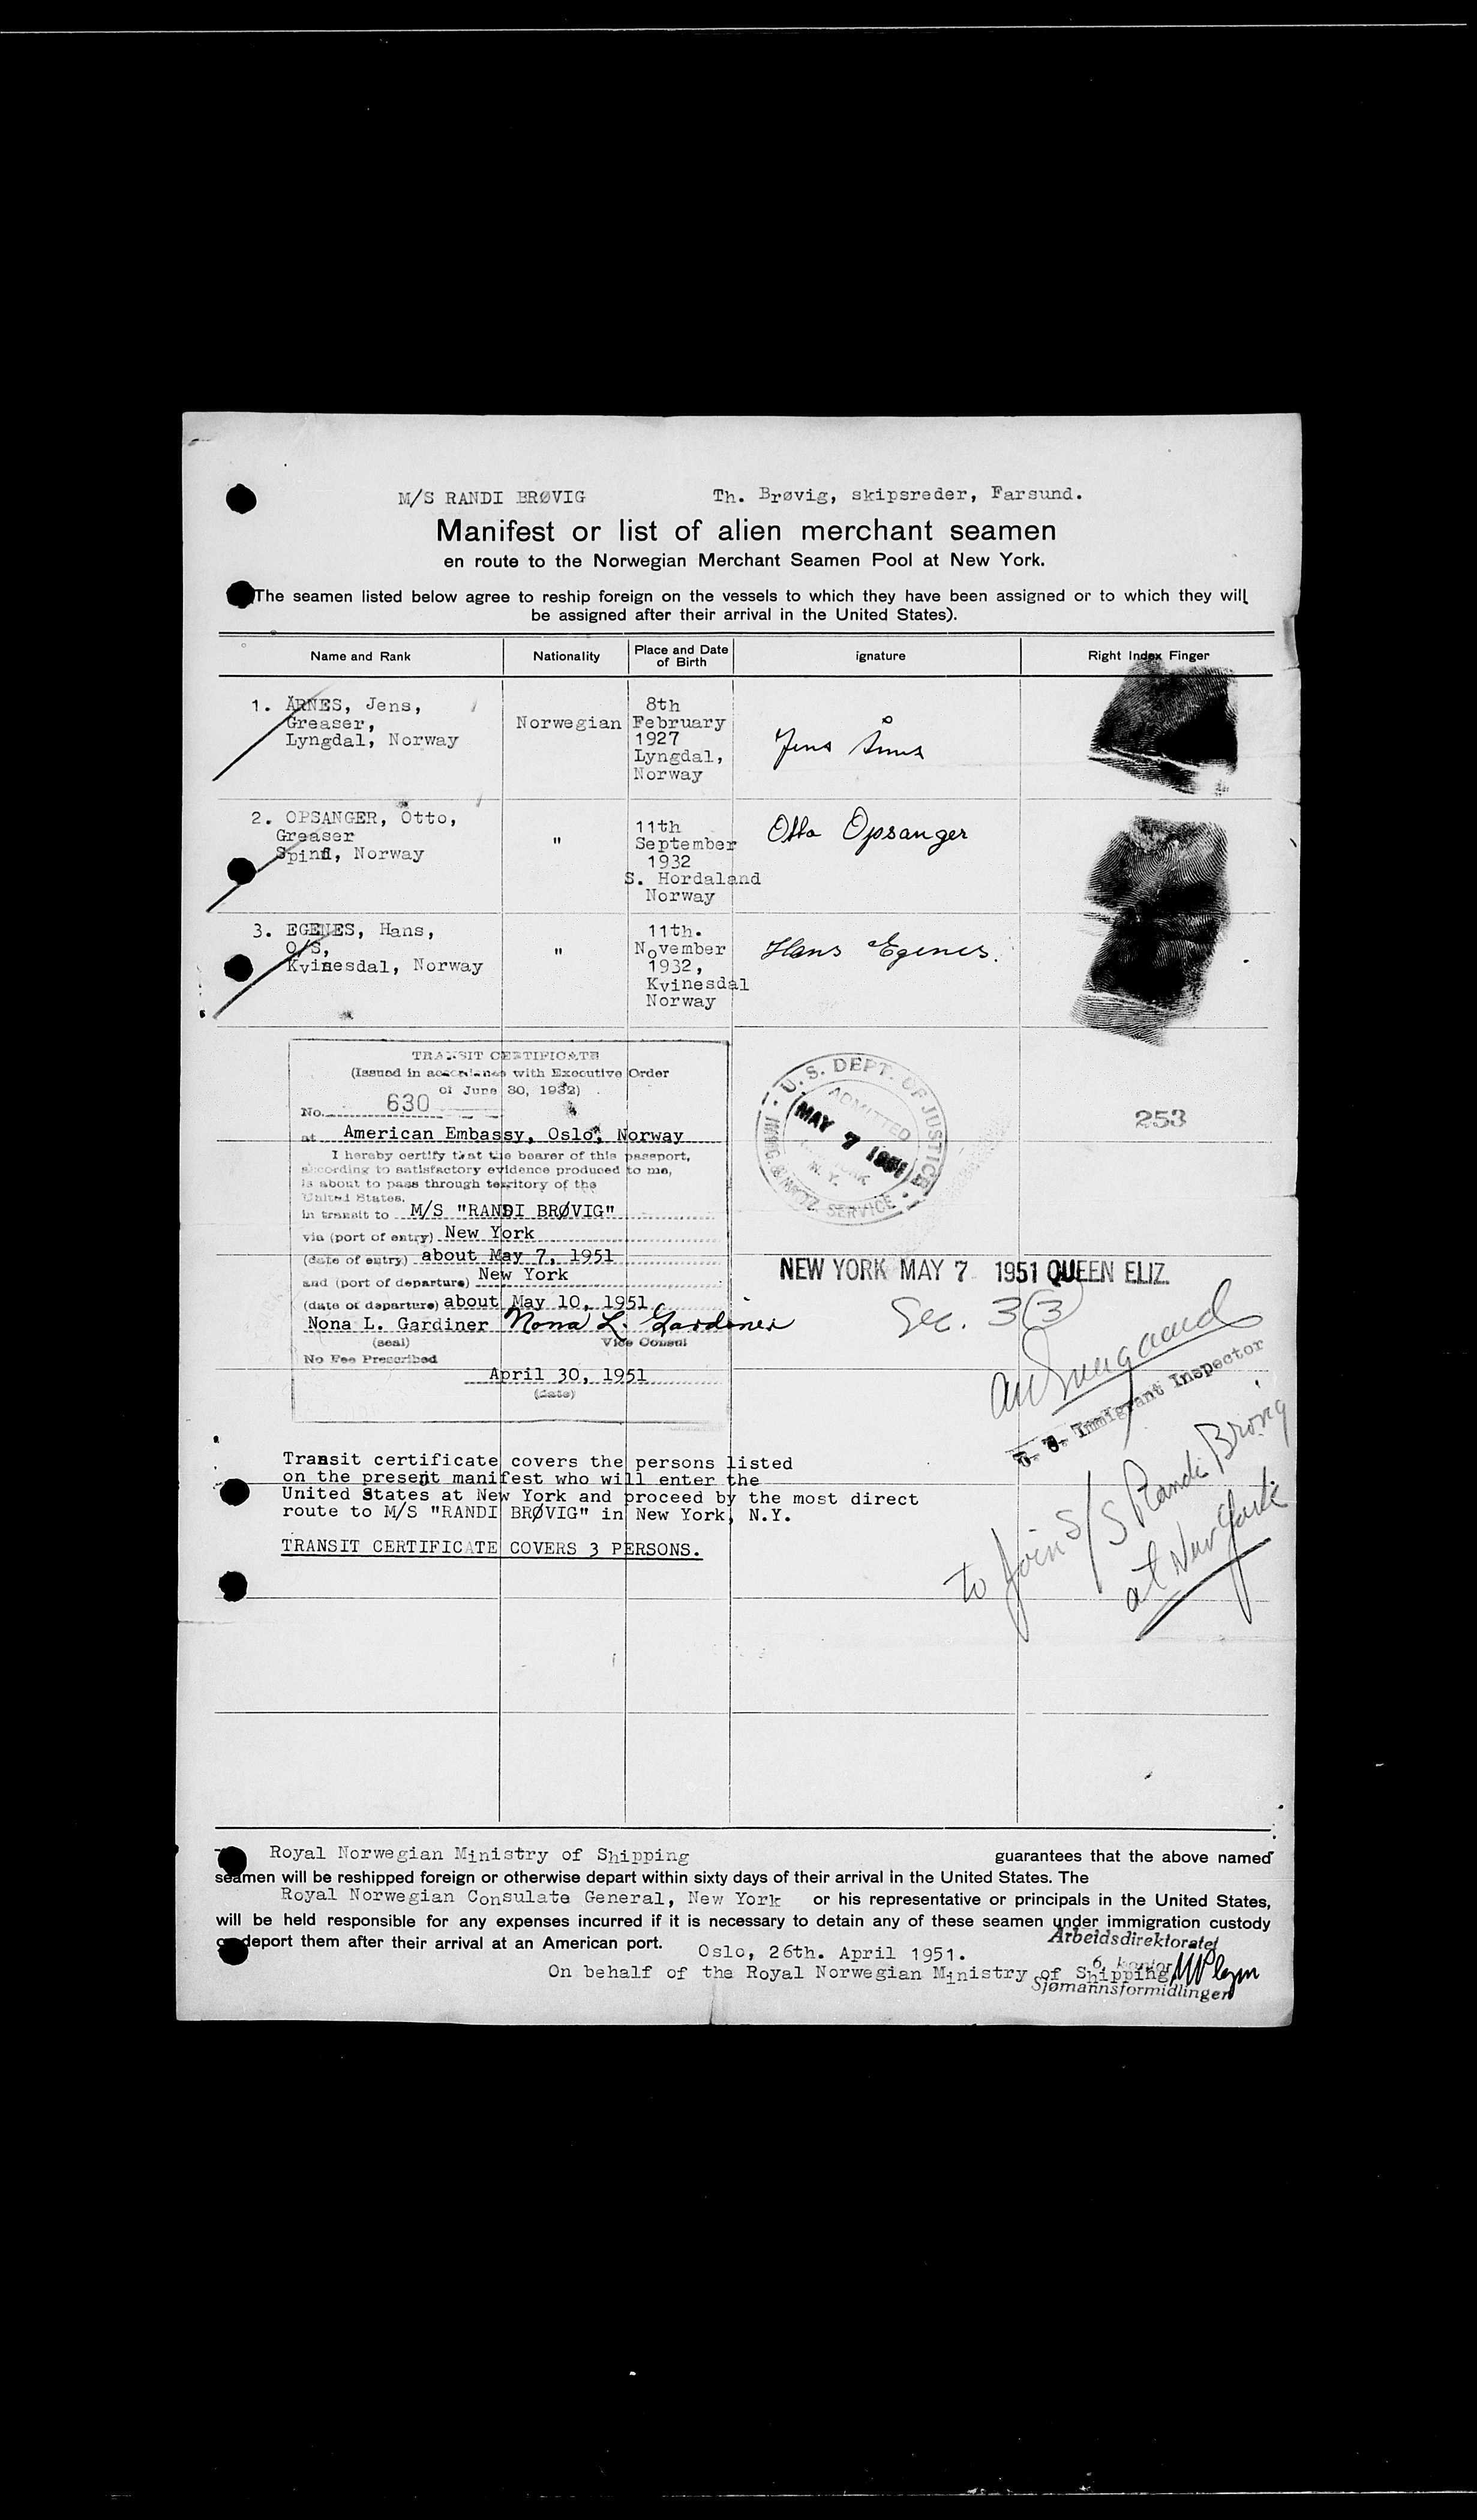 M/S RANDI BRØVIG Th. Brøvig, skipsreder, Farsund.
Manifest or list of alien merchant seamen
en route to the Norwegian Merchant Seamen Pool at New York.
(The seamen listed below agree to reship foreign on the vessels to which they have been assigned or to which they will
be assigned after their arrival in the United States).
Name and Rank Nationality Place and Date of Birth ignature Right Index Finger
1. ÅRNES, Jens,
Greaser,
Lyngdal, Norway
Norwegian
8th
February
1927
Lyngdal,
Norway
Jens Årnes
2. OPSANGER, Otto,
Greaser
Norway
"
11th
September
1932
S. Hordaland
Norway
Otto Opsanger
3. EGENES, Hans,
O/S,
Kvinesdal, Norway
"
11th.
November
1932,
Kvinesdal
Norway
Hans Egenes.
TRANSIT CERTIFICATE
(Issued in accordance with Executive Order
of June 30, 1932)
No. 630
at American Embassy, Oslo, Norway
I hereby certify that the bearer of this passport,
according to satisfactory evidence produced to me,
is about to pass through territory of the
United States.
in transit to M/S "RANDI BRØVIG"
via (port of entry) New York
(date of entry) about May 7, 1951
and (port of departure) New York
(date of departure) about May 10, 1951
Nona L. Gardiner Nona L. Gardiner
(seal) Vice Consul
No Fee Prescribed
April 30, 1951
(date)
U. S. DEPT. OF JUSTICE
ADMITTED
MAY 7 1951
N. Y.
IMMIG. & NATZ. SERVICE
253
NEW YORK MAY 7 1951 QUEEN ELIZ.
Sec. 3(3)
U. S. Immigrant Inspector
to join S/S Randi Brovig
at New York
Transit certificate covers the persons listed
on the present manifest who will enter the
United States at New York and proceed by the most direct
route to M/S "RANDI BRØVIG" in New York, N.Y.
TRANSIT CERTIFICATE COVERS 3 PERSONS.
Royal Norwegian Ministry of Shipping guarantees that the above named
seamen will be reshipped foreign or otherwise depart within sixty days of their arrival in the United States. The
Royal Norwegian Consulate General, New York or his representative or principals in the United States,
will be held responsible for any expenses incurred if it is necessary to detain any of these seamen under immigration custody
or deport them after their arrival at an American port.
Oslo, 26th. April 1951.
On behalf of the Royal Norwegian Ministry of Shipping
Arbeidsdirektoratet
6. kontor
Sjømannsformidlingen